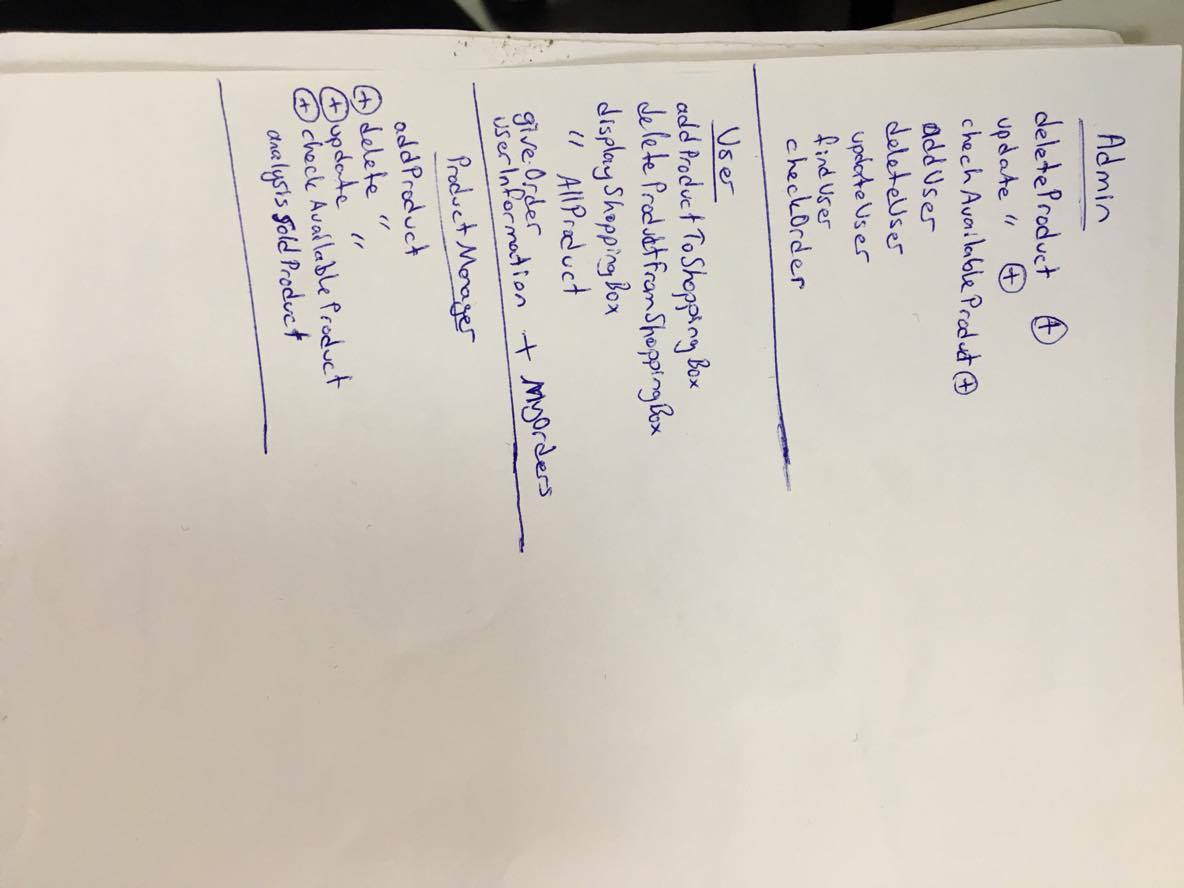 Admin
deleteProduct ⊕
update " ⊕
checkAvailableProduct ⊕
addUser
deleteUser
updateUser
findUser
checkOrder
User
addProductToShoppingBox
deleteProductFromShoppingBox
displayShoppingBox
" AllProduct
giveOrder
userInformation + MyOrders
Product Manager
addProduct
⊕ delete "
⊕ update "
⊕ checkAvailableProduct
analysisSoldProduct